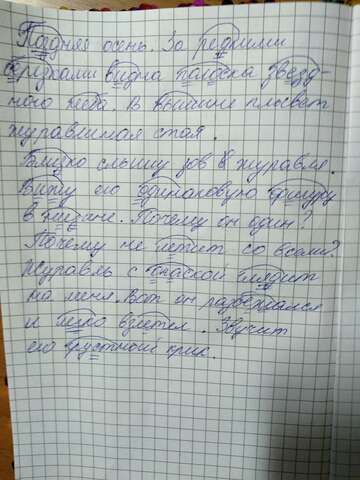 Поздняя осень. За редкими
берёзками видна полоска звезд-
ного неба. В вышине плывёт
журавлиная стая.
Близко слышу зов журавля.
Вижу его одинаковую фигуру
в низине. Почему он один?
Почему не летит со всеми?
Журавль с опаской глядит
на меня. Вот он разбежался
и легко взлетел. Звучит
его грустный крик.